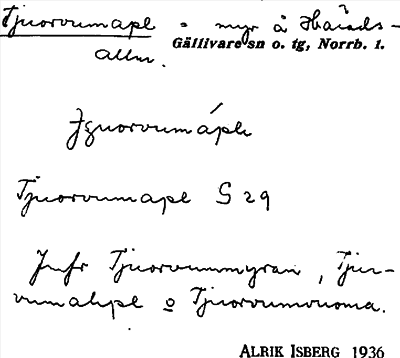 Tjuorvumapl = myr å Härads-
allm. Gällivare sn o. tg, Norrb. l.
Tjuorvumápli
Tjuorvumapl S 29
Jmfr Tjuorvummyran, Tjur-
vumahpe o Tjuorvumvuoma.
ALRIK ISBERG 1936